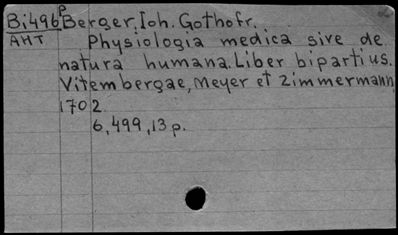 Bi496p Berger, Ioh. Gothofr.
AHT Physiologia medica sive de
natura humana. Liber bipartius.
Vitembergae, Meyer et Zimmermann,
1702.
6,499,13 p.